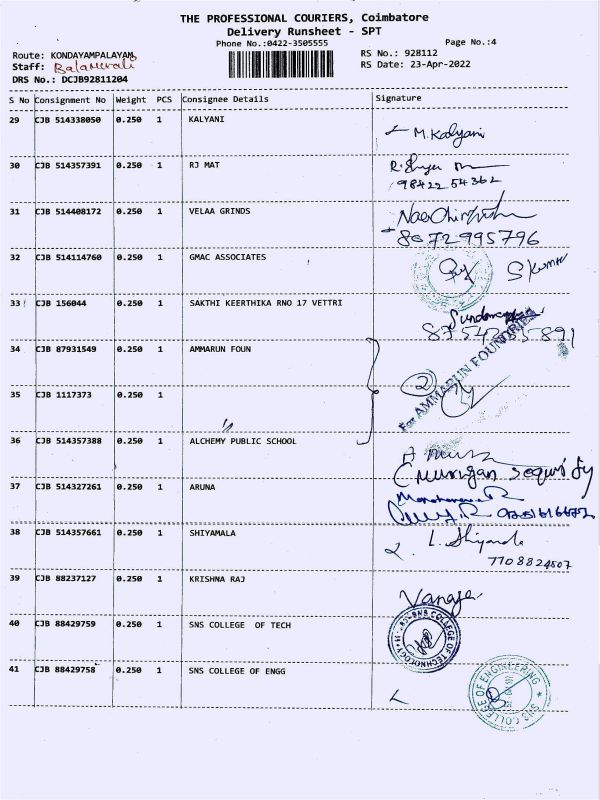 THE PROFESSIONAL COURIERS, Coimbatore
Delivery Runsheet - SPT
Phone No.:0422-3505555
Page No.:4
Route: KONDAYAMPALAYAM,
RS No.: 928112
Staff: Balamurali
RS Date: 23-Apr-2022
DRS No.: DCJB92811204
S No Consignment No Weight PCS Consignee Details Signature
29 CJB 514338050 0.250 1 KALYANI M.Kalyani
30 CJB 514357391 0.250 1 RJ MAT
98422 54362
31 CJB 514408172 0.250 1 VELAA GRINDS
8072995796
32 CJB 514114760 0.250 1 GMAC ASSOCIATES S Kumar
33 CJB 156044 0.250 1 SAKTHI KEERTHIKA RNO 17 VETTRI
34 CJB 87931549 0.250 1 AMMARUN FOUN
For AMMARUN FOUNDRIES
35 CJB 1117373 0.250 1
2
36 CJB 514357388 0.250 1 ALCHEMY PUBLIC SCHOOL
Murugan
37 CJB 514327261 0.250 1 ARUNA
38 CJB 514357661 0.250 1 SHIYAMALA
7708824507
39 CJB 88237127 0.250 1 KRISHNA RAJ Vanaja
40 CJB 88429759 0.250 1 SNS COLLEGE OF TECH
SNS COLLEGE OF TECHNOLOGY
41 CJB 88429758 0.250 1 SNS COLLEGE OF ENGG
SNS COLLEGE OF ENGINEERING